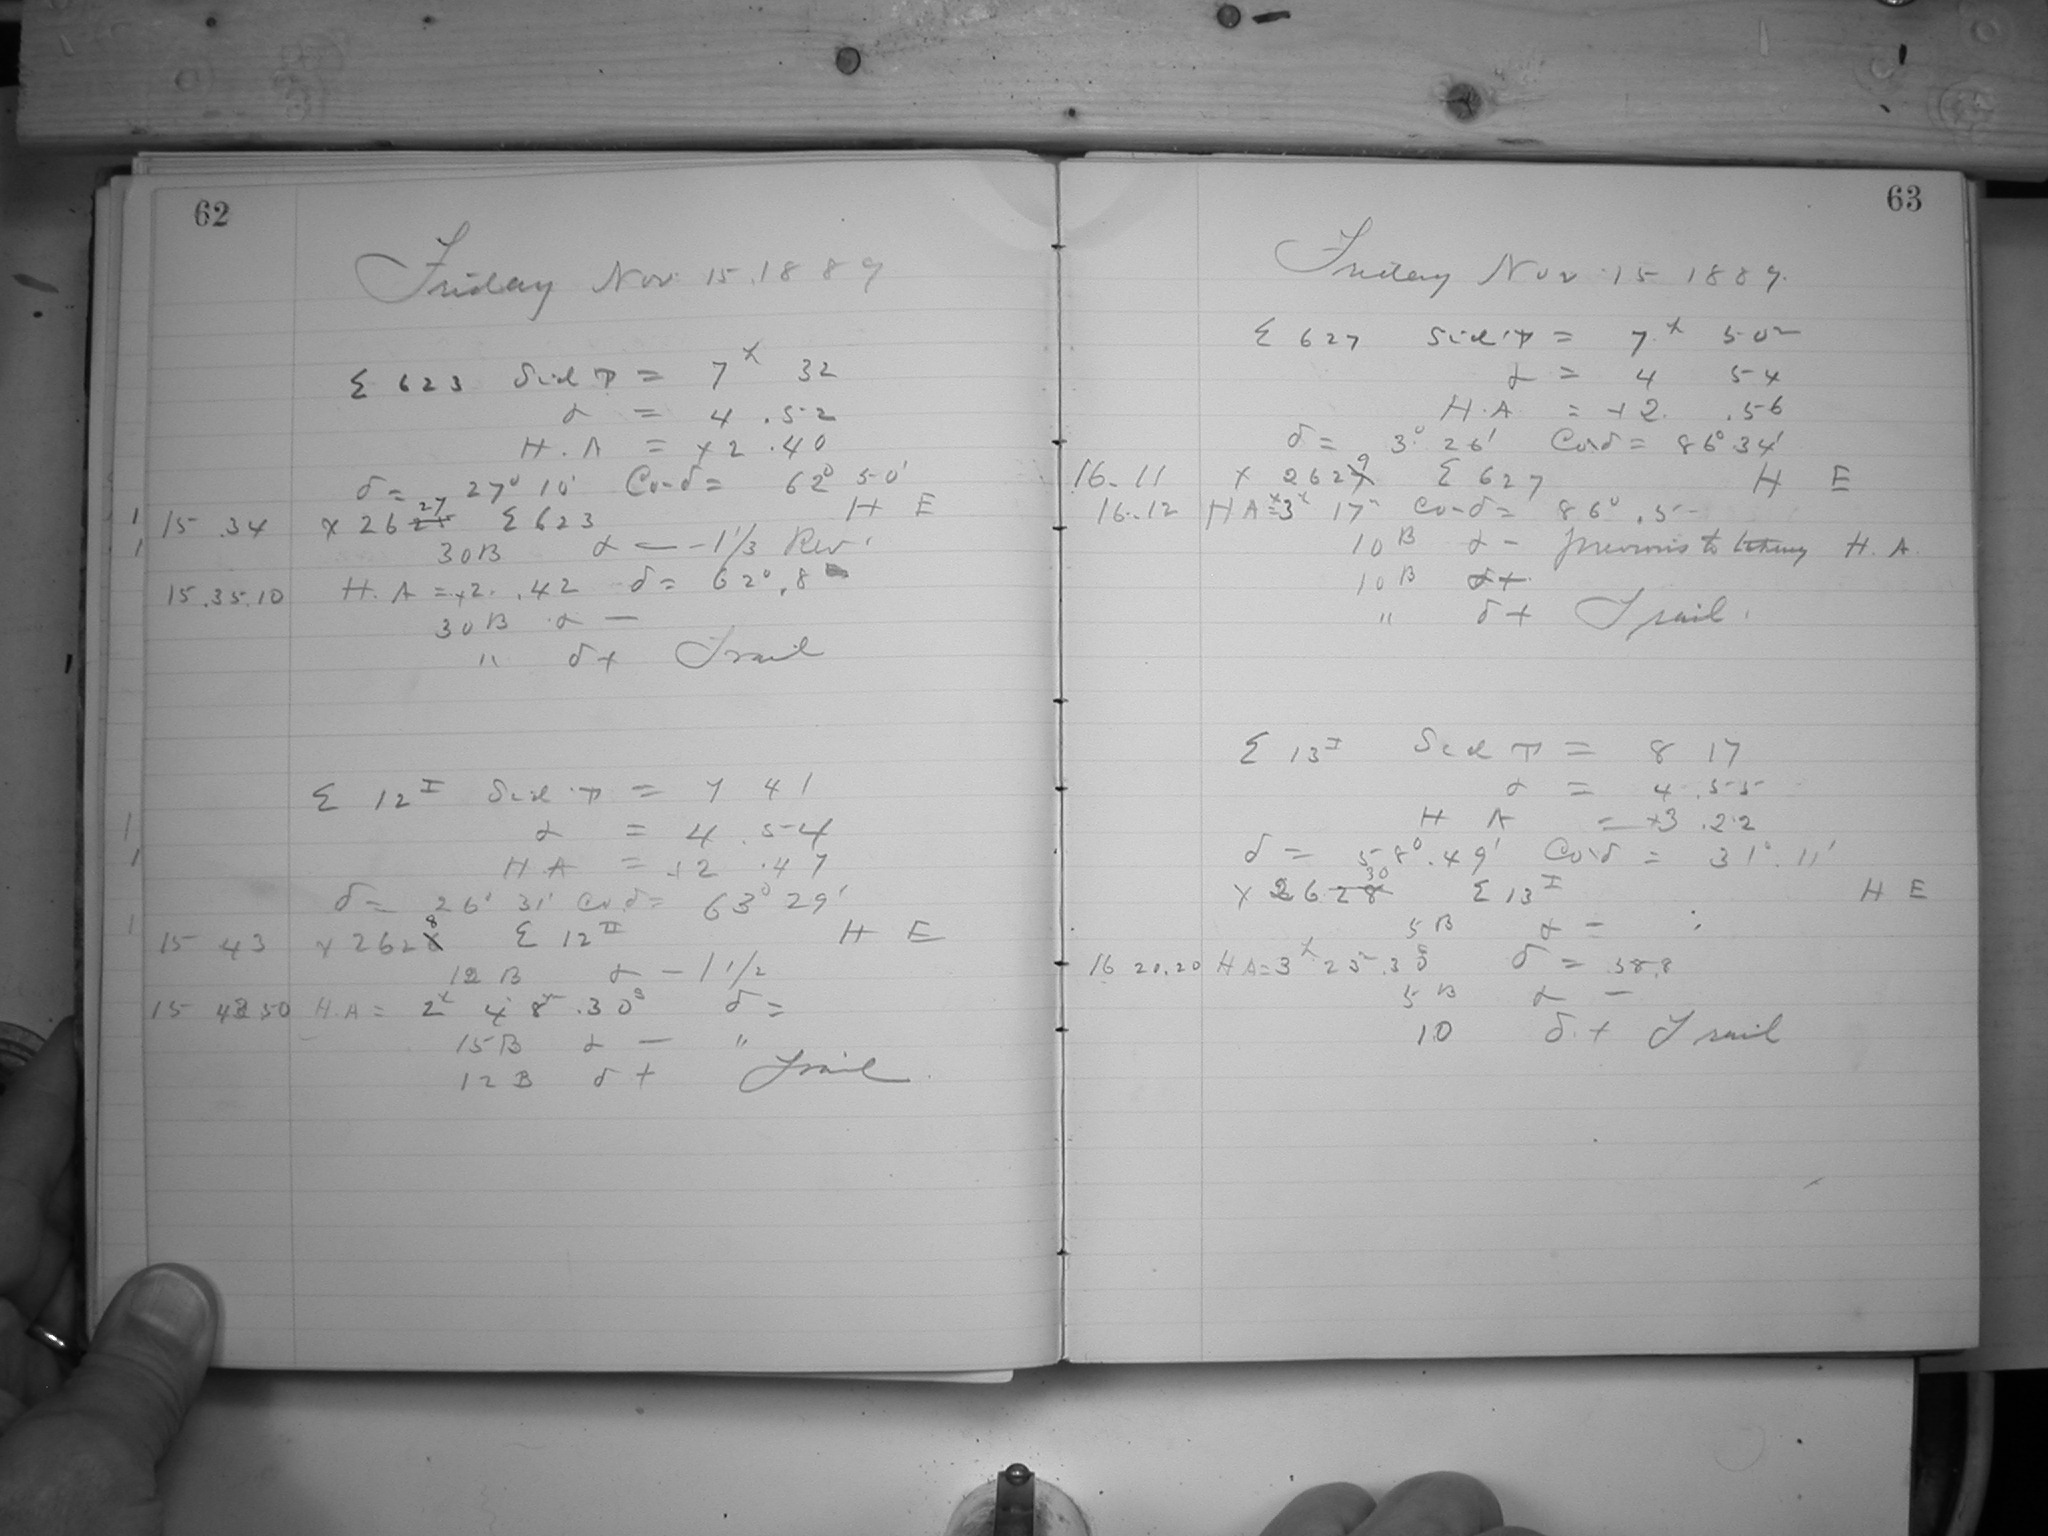 62
Friday Nov. 15, 1889
Σ 623 Sid T = 7ʰ 32
α = 4 . 52
H. A = +2 . 40
δ = 27° 10' Co-δ = 62° 50'
1 15 34 × 2627 Σ 623 H E
1 30B α — -1 1/3 Rev.
15.35.10 H. A = +2. .42 δ = 62°.8
30 B α —
" δ + Trail
Σ 12ᴵ Sid T = 7 41
1 α = 4 . 54
1 H A = +2 . 47
δ = 26° 31' Co.δ = 63° 29'
1 15 43 × 2628 Σ 12ᴵᴵ H E
12 B α - 1 1/2
15 43 50 H.A = 2ʰ 48ᵐ.30ˢ δ =
15B α — "
12 B δ + Trail
63
Friday Nov. 15 1889.
Σ 627 Sid T = 7ʰ 50ᵐ
α = 4 54
H. A = +2. .56
δ = 3° 26' Co-δ = 86° 34'
16. 11 × 2629 Σ 627 H E
16.12 HA = 3ʰ 17ᵐ Co-δ = 86°.5
10 B α - previous to taking H. A.
10 B δ+
" δ + Trail.
Σ 13ᴵ Sid T = 8 17
α = 4 . 55
H A = +3 .22
δ = 58°.49' Co-δ = 31°.11'
× 2630 Σ 13ᴵ H E
5 B α - :
16 20.20 HA = 3ʰ 25.30 δ = 58.8
5 B α —
10 δ. + Trail